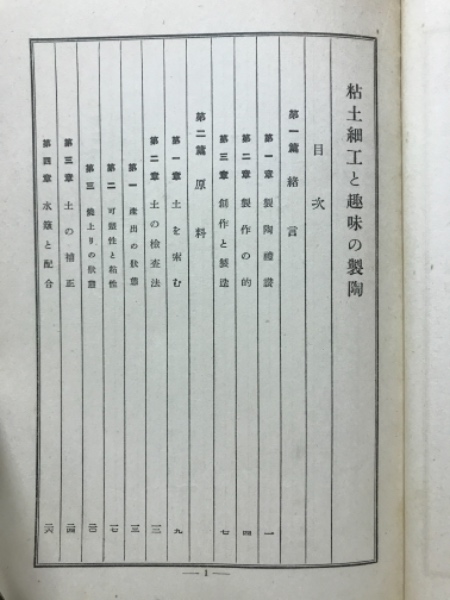 粘土細工と趣味の製陶
目次
第一篇 緒言
第一章 製陶禮讃 一
第二章 製作の的 四
第三章 創作と製造 七
第二篇 原料
第一章 土を索む 九
第二章 土の檢査法 一三
第一 産出の狀態 一三
第二 可塑性と粘性 一七
第三 燒上りの狀態 二〇
第三章 土の補正 二四
第四章 水簸と配合 二六
— 1 —